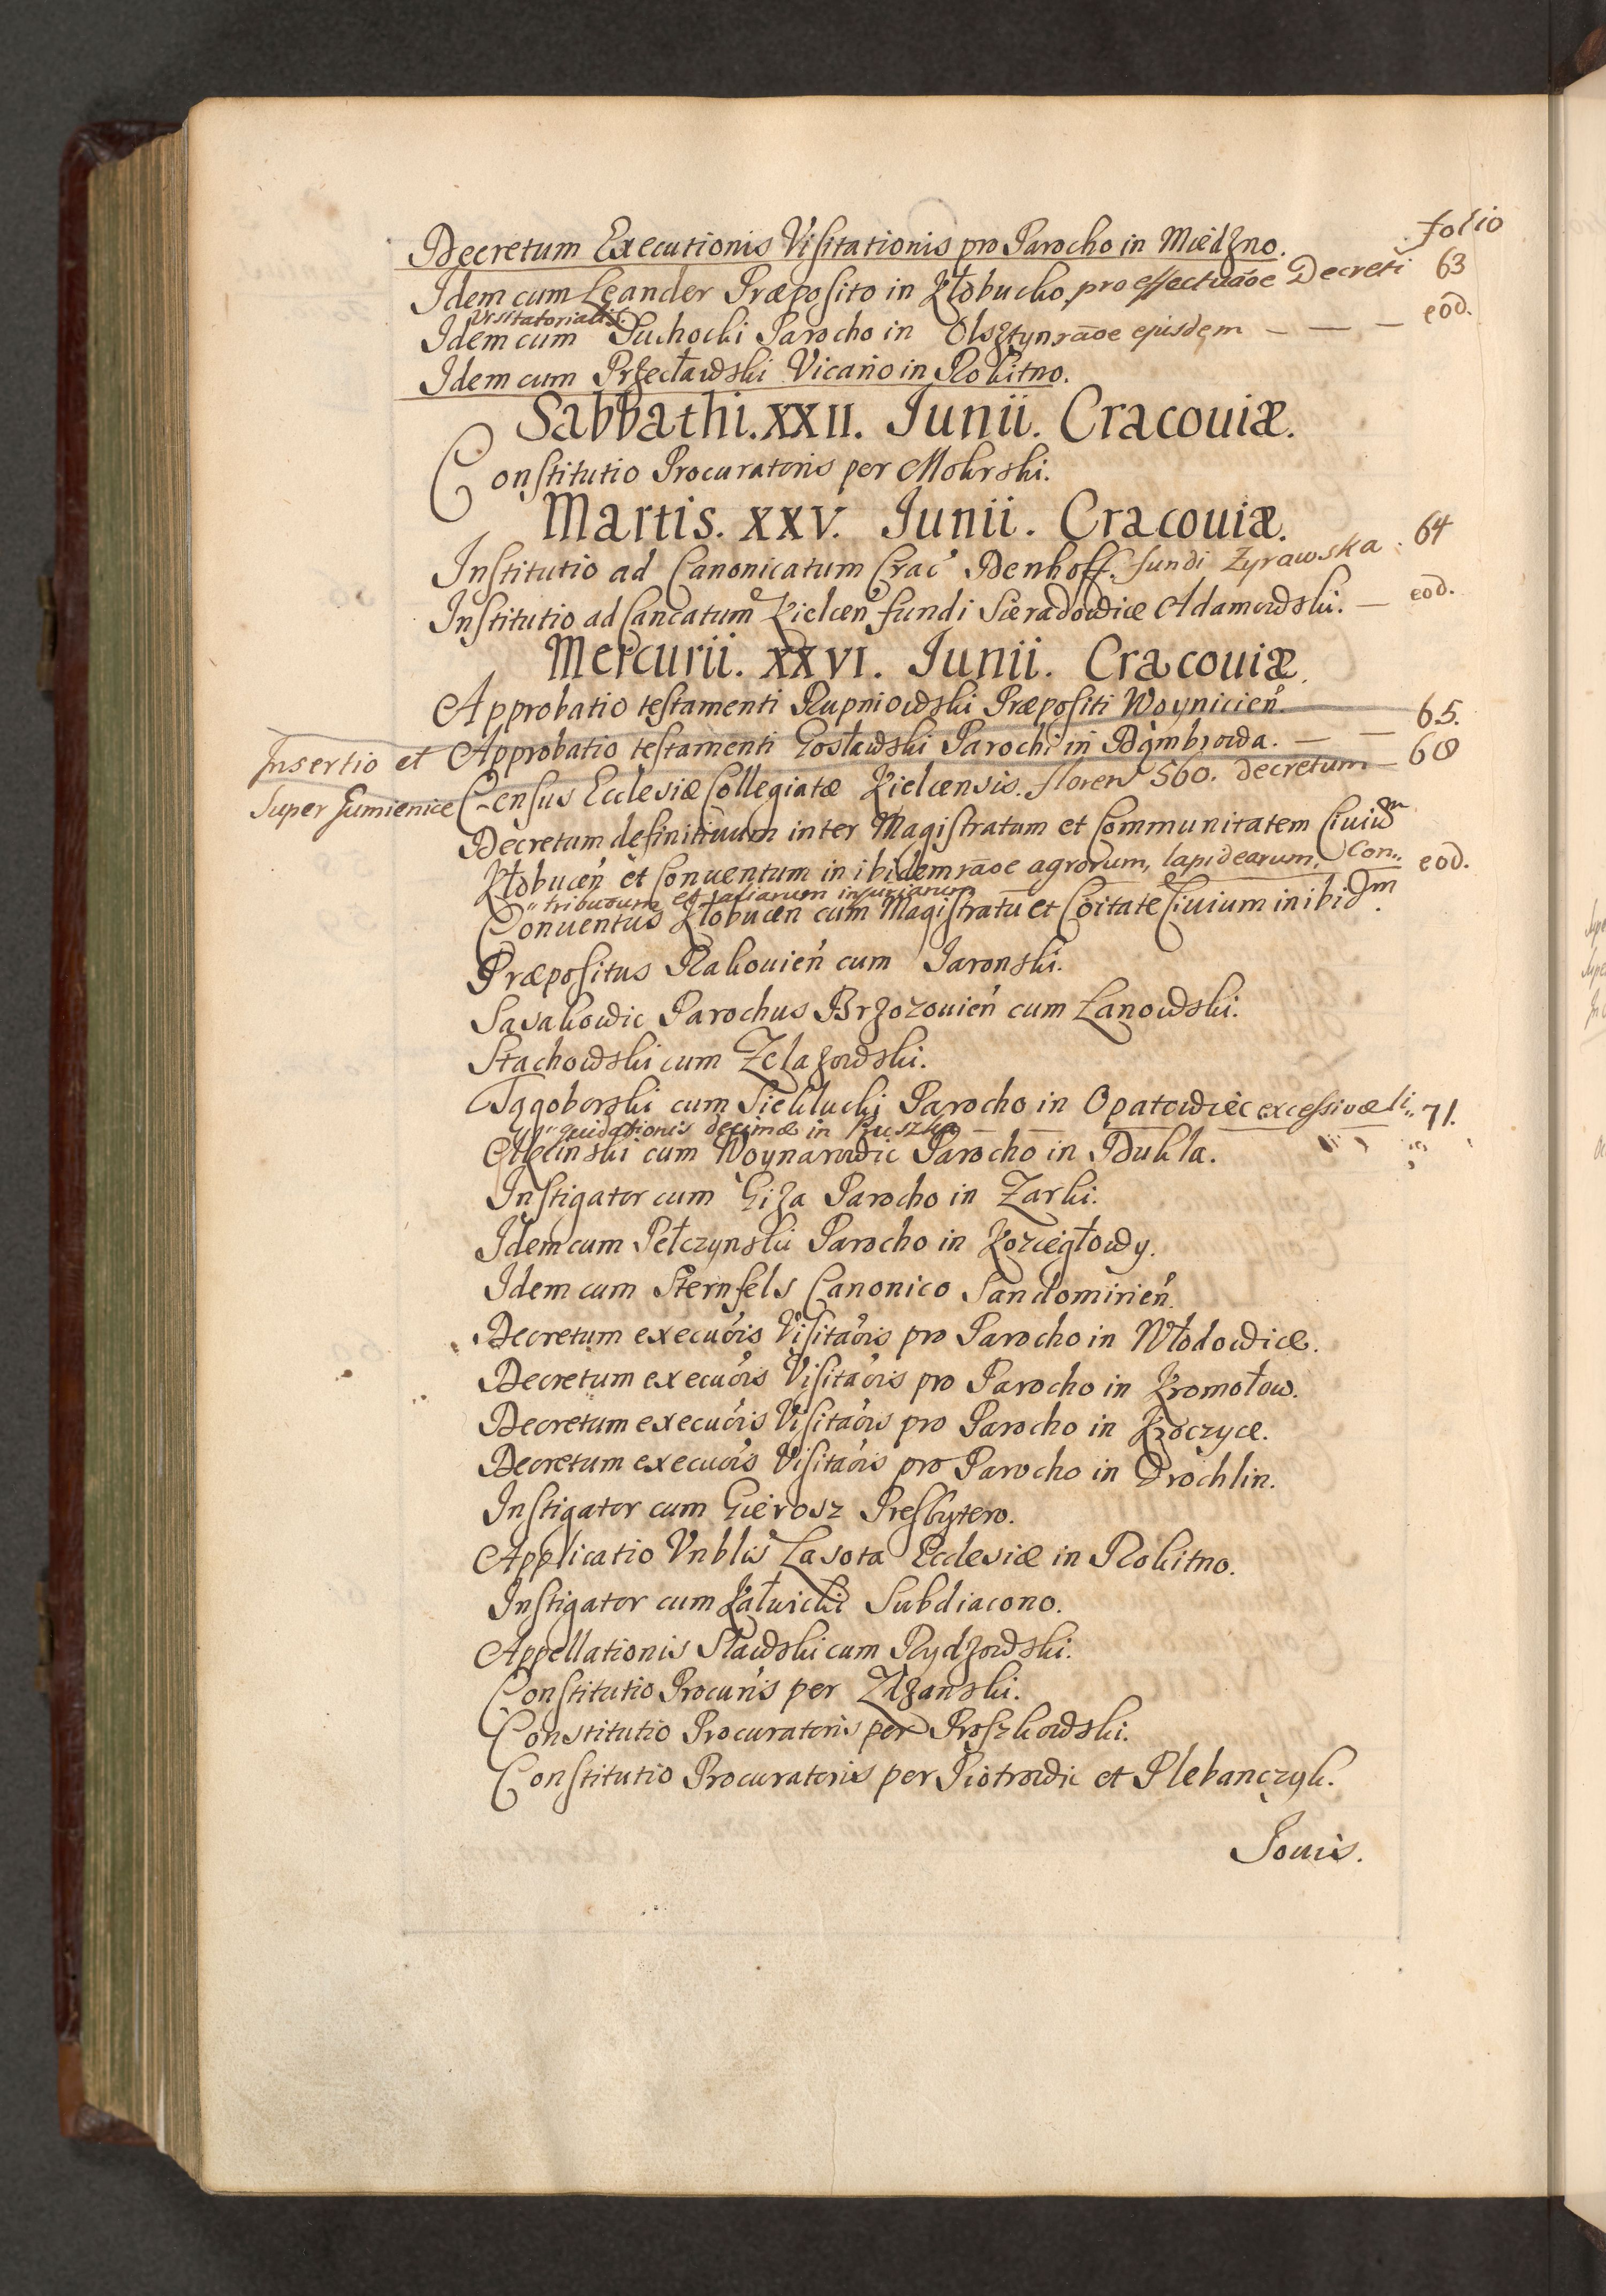 folio
Decretum Executionis Visitationis pro Parocho in Miedzno.
Idem cum Leander Præposito in Kłobucko pro effectuaõe Decreti 63
Visitatorialis.
Idem cum Suchocki Parocho in Olsztyn raõe ejusdem — — — eod.
Idem cum Przecławski Vicario in Rokitno.
Sabbathi. XXII. Junii. Cracouiæ.
Constitutio Procuratoris per Mokrski.
Martis. XXV. Junii. Cracouiæ.
Institutio ad Canonicatum Crac' Denhoff. fundi Zyrawska. 64
Institutio ad Cancatum Kielcen' fundi Sieradowice Adamowski. — eod.
Mercurii. XXVI. Junii. Cracouiæ.
Approbatio testamenti Rupniowski Præpositi Woynicien'.
Insertio et Approbatio testamenti Gosławski Parochi in Dąmbrowa. — — 65.
Super Jumienice Census Ecclesiæ Collegiatæ Kielcensis. floren 560. decretum — 68
Decretum definitivum inter Magistratum et Communitatem Civium
Kłobucen' et Conuentum inibidem raõe agrorum, lapidearum, Con„ eod.
„tribuuum et aliarum injuriarum
Conuentus Kłobucen cum Magistratu et Coitate Civium inibidm.
Præpositus Rakouien' cum Jaronski.
Sasakowic Parochus Brzozouien' cum Łanowski.
Stachowski cum Zelazowski.
Tągoborski cum Siekłucki Parocho in Opatowiec excessivæ li„ 71.
„quidationis decimæ in Ruszka — —
cum Woynarowic Parocho in Dukla.
Instigator cum Giza Parocho in Zarki.
Idem cum Pełczynski Parocho in Koziegłowy.
Idem cum Sternfels Canonico Sandomirien'.
Decretum execuõis Visitaõis pro Parocho in Włodowice.
Decretum execuõis Visitaõis pro Parocho in Kromołow.
Decretum execuõis Visitaõis pro Parocho in Kroczyce.
Decretum execuõis Visitaõis pro Parocho in Drochlin.
Instigator cum Gierosz Presbytero.
Applicatio Vnblis Lasota Ecclesiæ in Rokitno.
Instigator cum Kałwicki Subdiacono.
Appellationis Sławski cum Rydzowski.
Constitutio Procuris per Zdzanski.
Constitutio Procuratoris per Proszkowski.
Constitutio Procuratoris per Piotrowic et Plebanczyk.
Jouis.